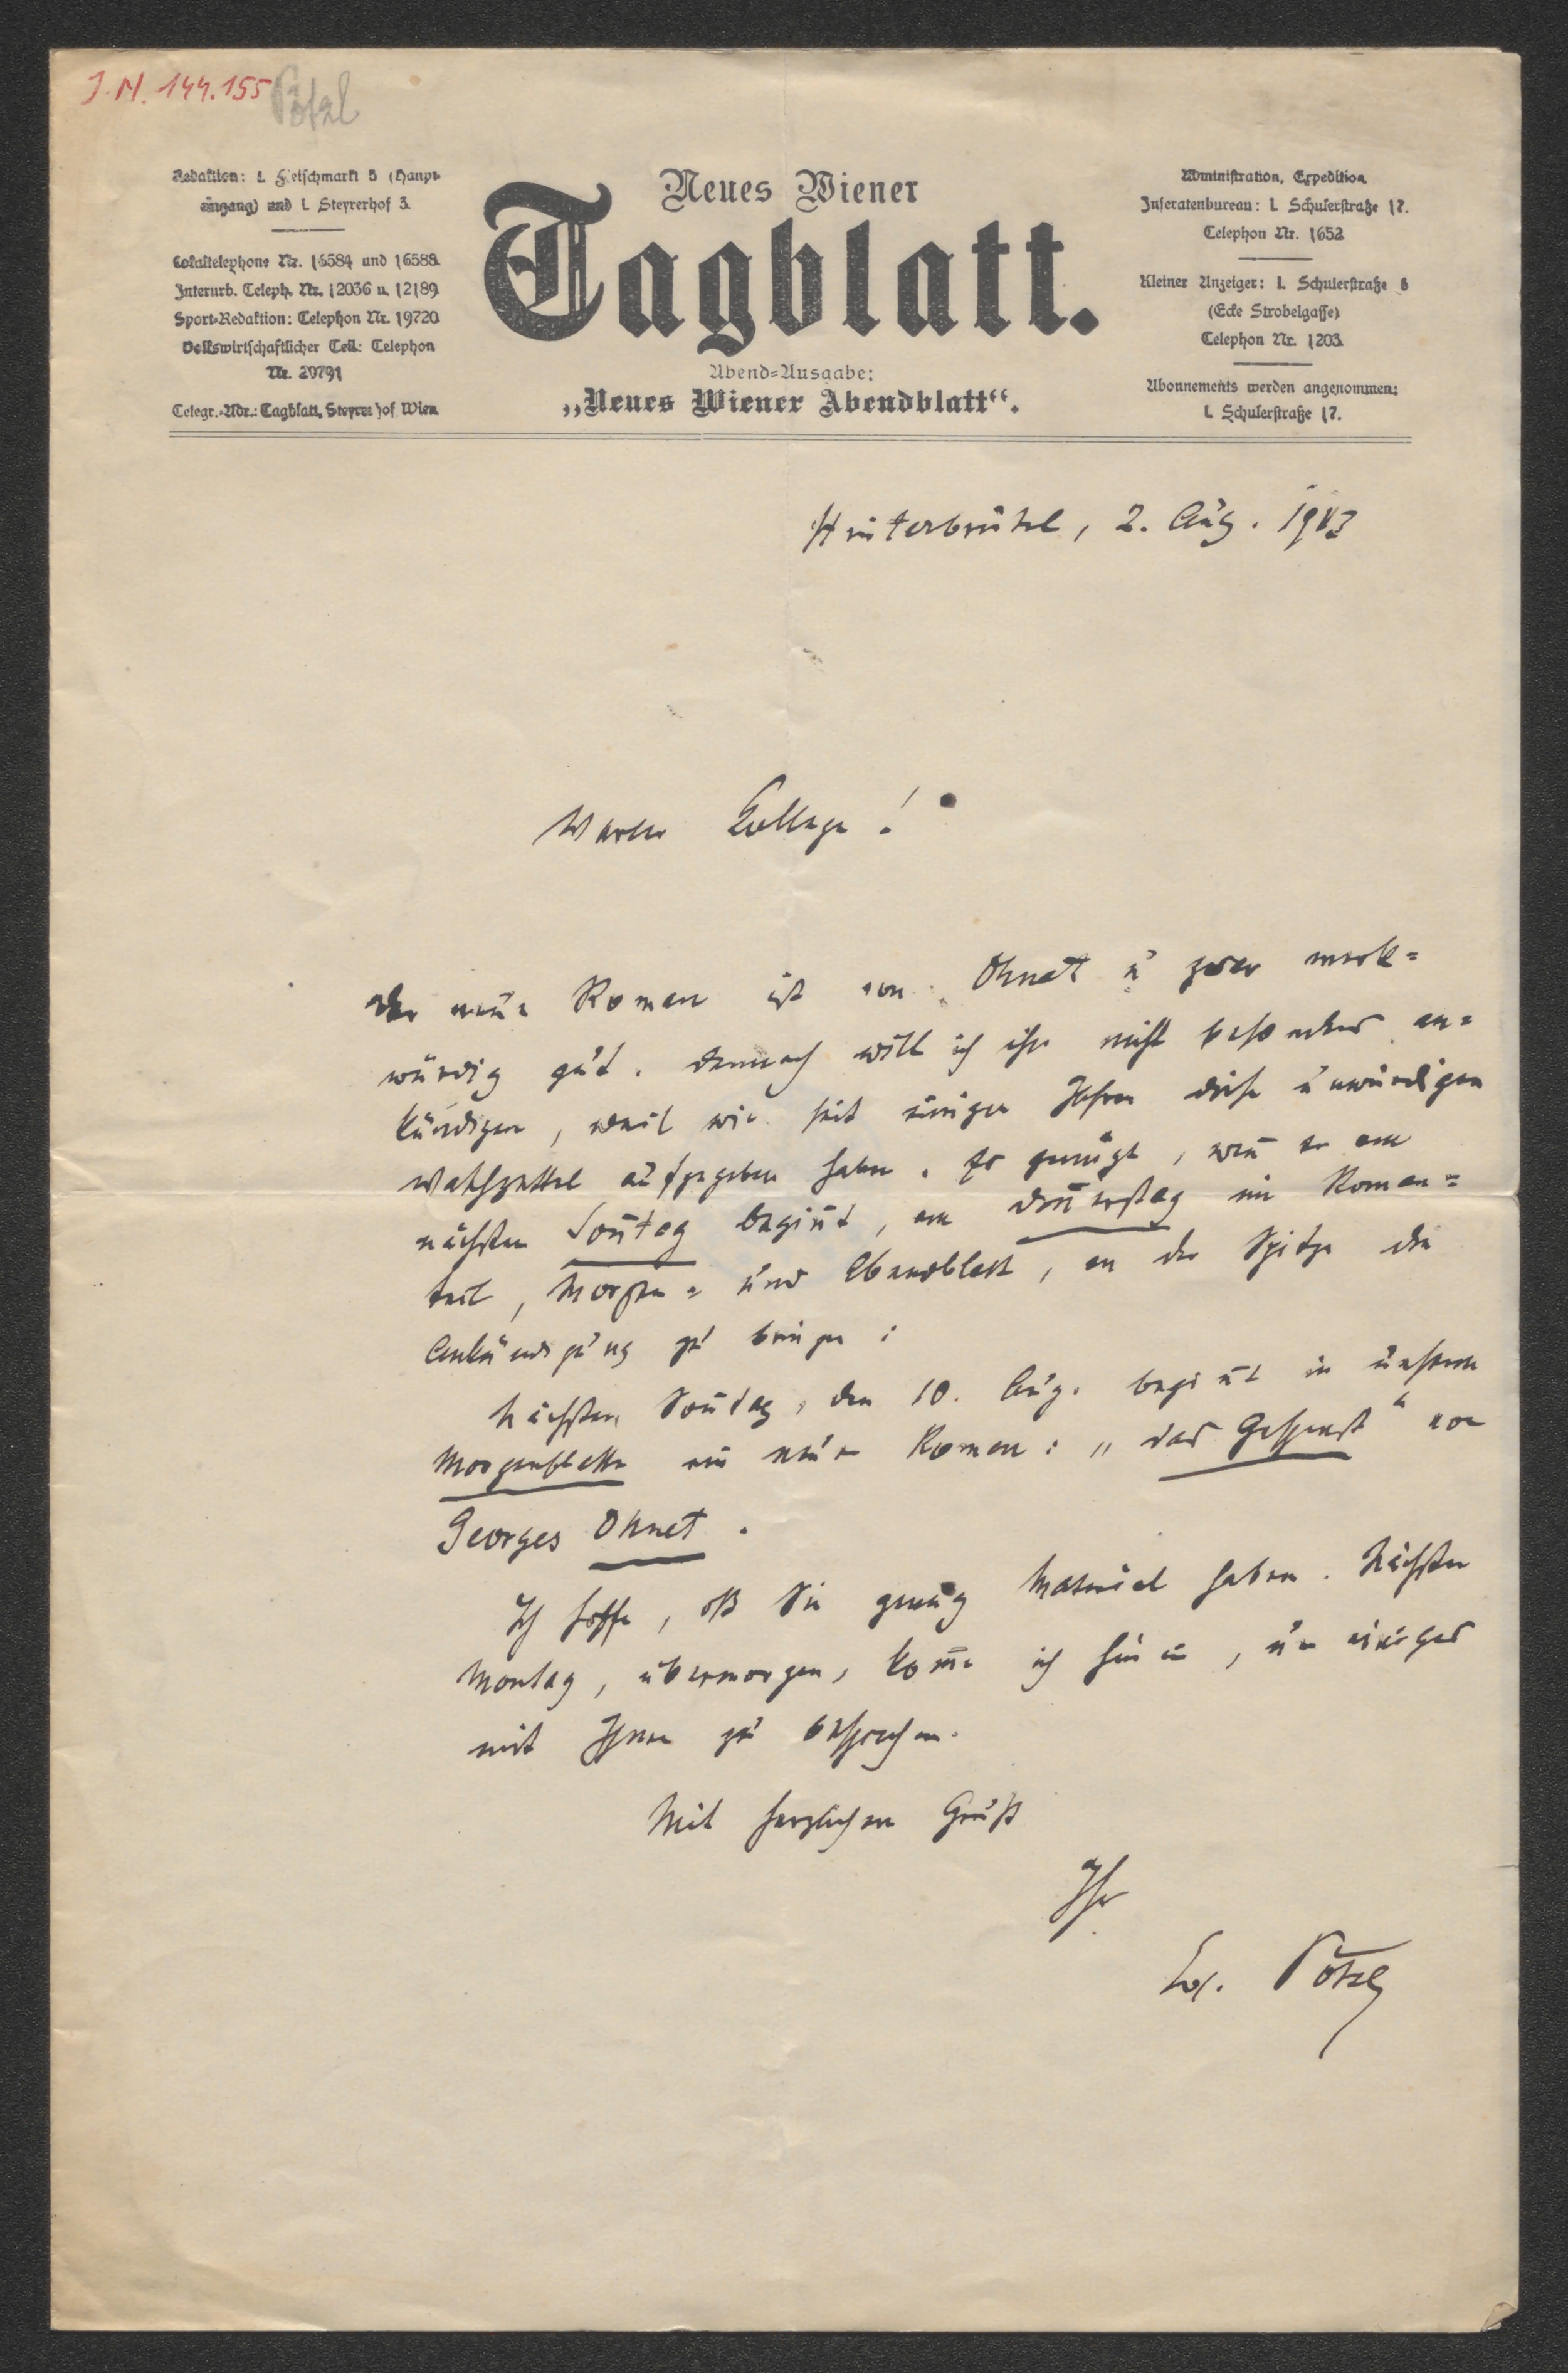 J.N. 144.155 Pötzl
Redaktion: I. Fleischmarkt 5 (Haupt-
eingang) und I. Steyrerhof 3.
Lokaltelephone Nr. 16584 und 16588.
Interurb. Teleph. Nr. 12036 u. 12189.
Sport-Redaktion: Telephon Nr. 19720.
Volkswirtschaftlicher Teil: Telephon
Nr. 20791
Telegr.-Adr.: Tagblatt, Steyrerhof Wien.
Neues Wiener
Tagblatt.
Abend-Ausgabe:
„Neues Wiener Abendblatt“.
Administration, Expedition
Inseratenbureau: I. Schulerstraße 17.
Telephon Nr. 1652
Kleiner Anzeiger: I. Schulerstraße 8
(Ecke Strobelgasse)
Telephon Nr. 1203.
Abonnements werden angenommen:
I. Schulerstraße 17.
Hinterbrühl, 2. Aug. 1913
Werter Kollege!
Der neue Roman ist von Ohnet u zwar merk=
würdig gut. Dennoch will ich ihn nicht besonders an=
kündigen, weil wir seit einigen Jahren diese unwürdigen
Waschzettel aufgegeben haben. Es genügt, wen̄ er am
nächsten Son̄tag begin̄t, am Don̄erstag im Roman=
teil, Morgen= und Abendblatt, an der Spitze die
Ankündigung zu bringen:
Nächsten Son̄tag, den 10. Aug. begin̄t in unserem
Morgenblatte ein neuer Roman: „Das Gespenst“ von
Georges Ohnet.
Ich hoffe, daß Sie genug Material haben. Nächsten
Montag, übermorgen, kom̄e ich hinein, um einiges
mit Ihnen zu besprechen.
Mit herzlichem Gruß
Ihr
Ed. Pötzl